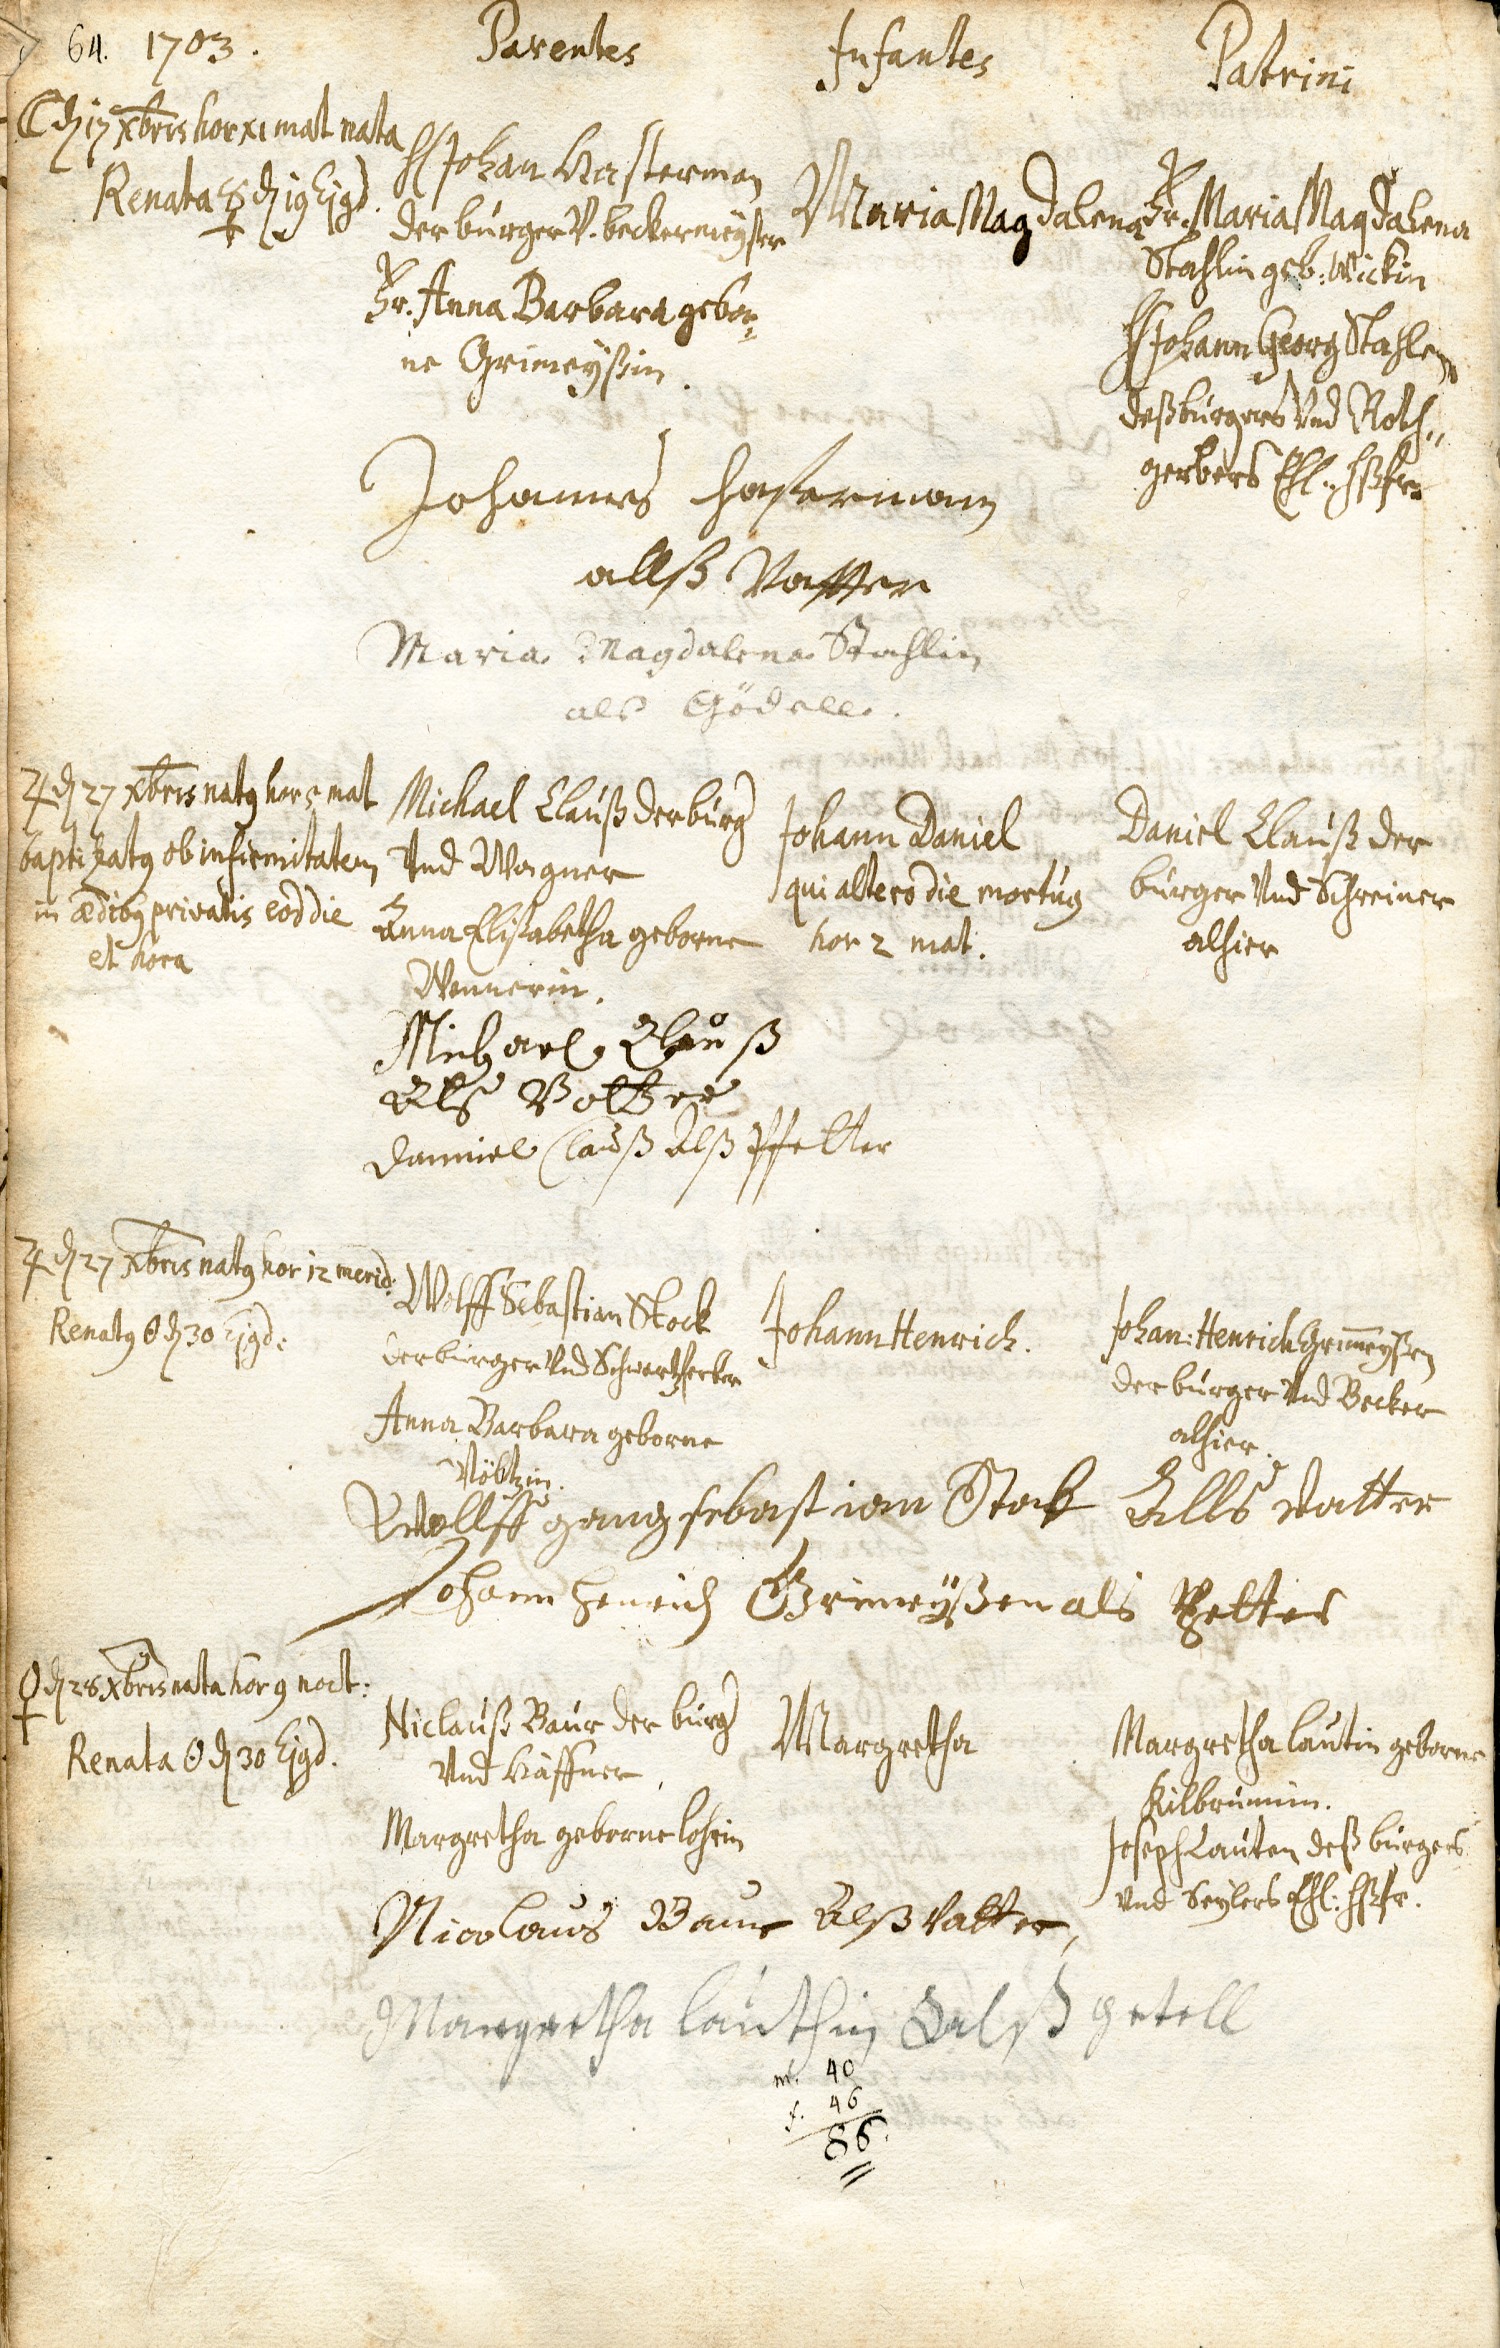 64. 1703.
Parentes
Infantes
Patrini
☾ d 17 Xbris hor XI mat nata
Renata ☿ d 19 Ejusd.
H Johan Hasterman
der burger V. beckermeyster
Fr. Anna Barbara gebor=
ne Grimeyßin.
Maria Magdalena
Fr. Maria Magdalena
Stahlin geb: Wickin
H Johann Georg Stahlen
deß burgers Vnd Roth=
gerbers Ehl. Hßfr.
Johannes Hasterman
allß Vatter
Maria Magdalena Stahlin
als Gödell.
♃ d 27 Xbris natus hor 5 mat
baptizatus ob infirmitatem
in ædibus privatis eod die
et hora
Michael Clauß der burg
Vnd Wagner
Anna Elisabetha geborne
Wennerin.
Johann Daniel
qui altero die mortuus
hor 2 mat.
Daniel Clauß der
burger Vnd Schreiner
alhier
Michael Clauß
Alß Vatter
Danniel Clauß Alß Pfetter
♃ d 27 Xbris natus hor 12 merid:
Renatus ☉ d 30 Ejusd:
Wolff Sebastian Stock
der burger Vnd Schwartzferber
Anna Barbara geborne
Völtzin.
Johann Henrich.
Johan: Henrich Grimeyßen
der burger Vnd Becker
alhier.
Wollffgang sebastian Stock Allß Vatter
Johann Henrich Grimeyßen als Petter
♀ d 28 Xbris nata hor 9 noct:
Renata ☉ d 30 Ejusd.
Niclauß Baur der burg
Vnd Häffner,
Margretha geborne Lohrin
Margretha
Margretha Lautin geborne
Kilbrunnin.
Joseph Lauten deß burgers
Vnd Seylers Ehl: Hßfr.
Nicolaus Baur Alß Vatter,
Margretha Lauthin Alß getell
m. 40
f. 46
86.